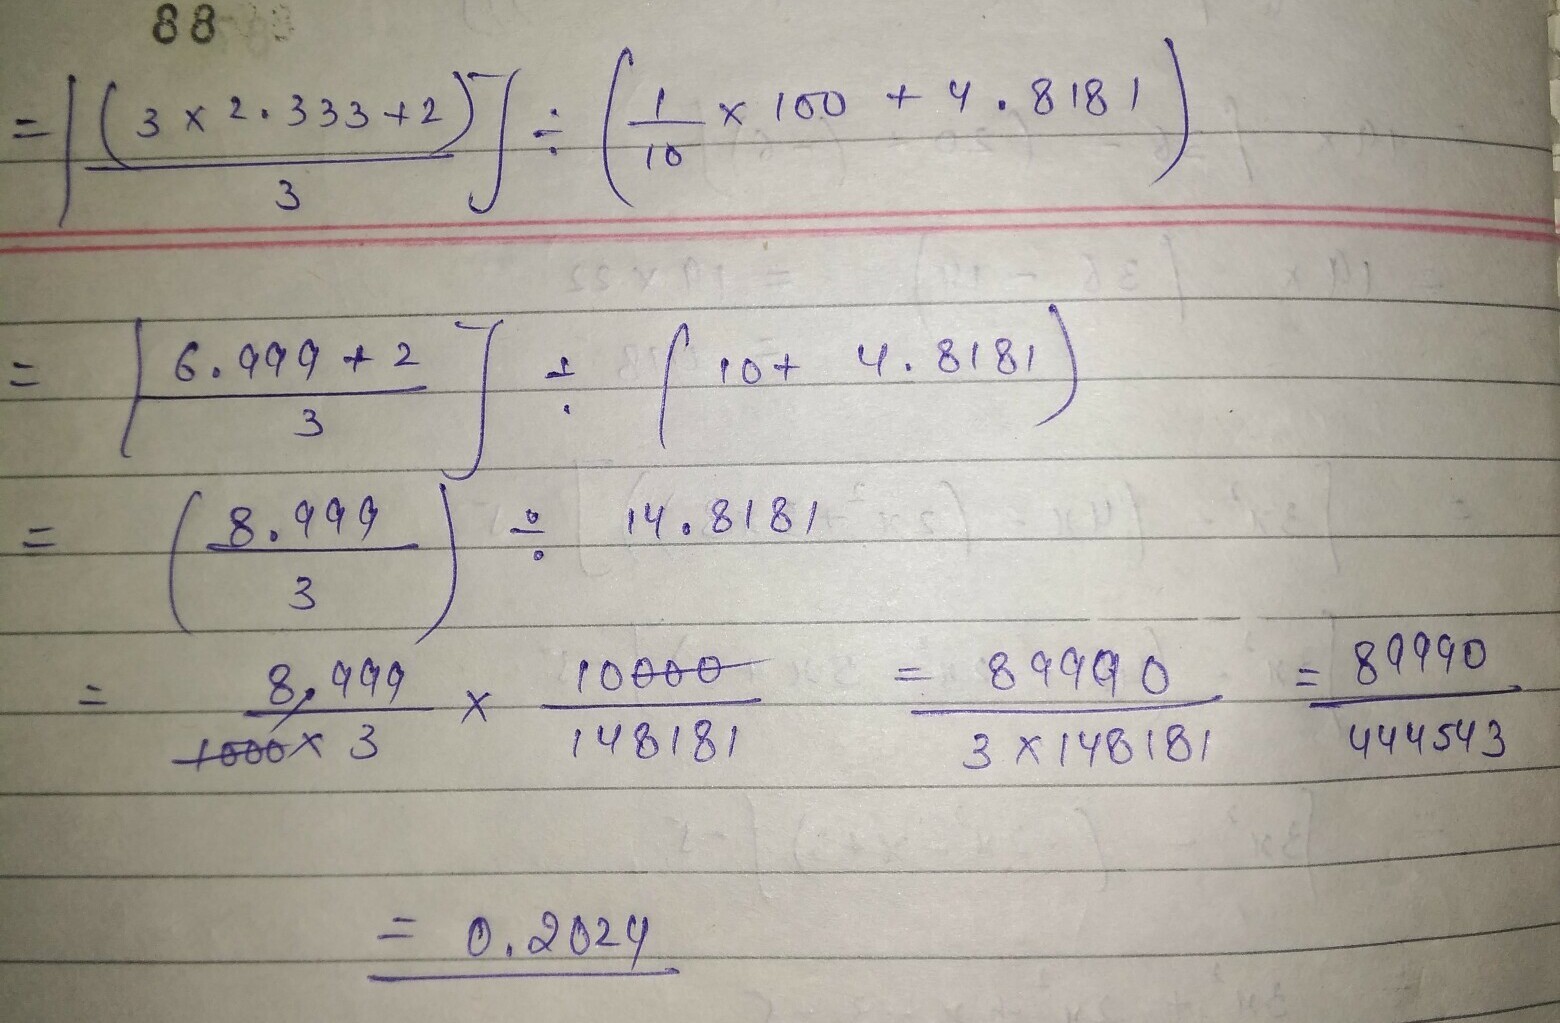 88
= [(3 x 2.333+2)/3] ÷ (1/10 x 100 + 4.8181)
= [6.999 + 2/3] ÷ (10+ 4.8181)
= (8.999/3) ÷ 14.8181
= 8.999/1000x 3 x 10000/148181 = 89990/3 x 148181 = 89990/444543
= 0.2024